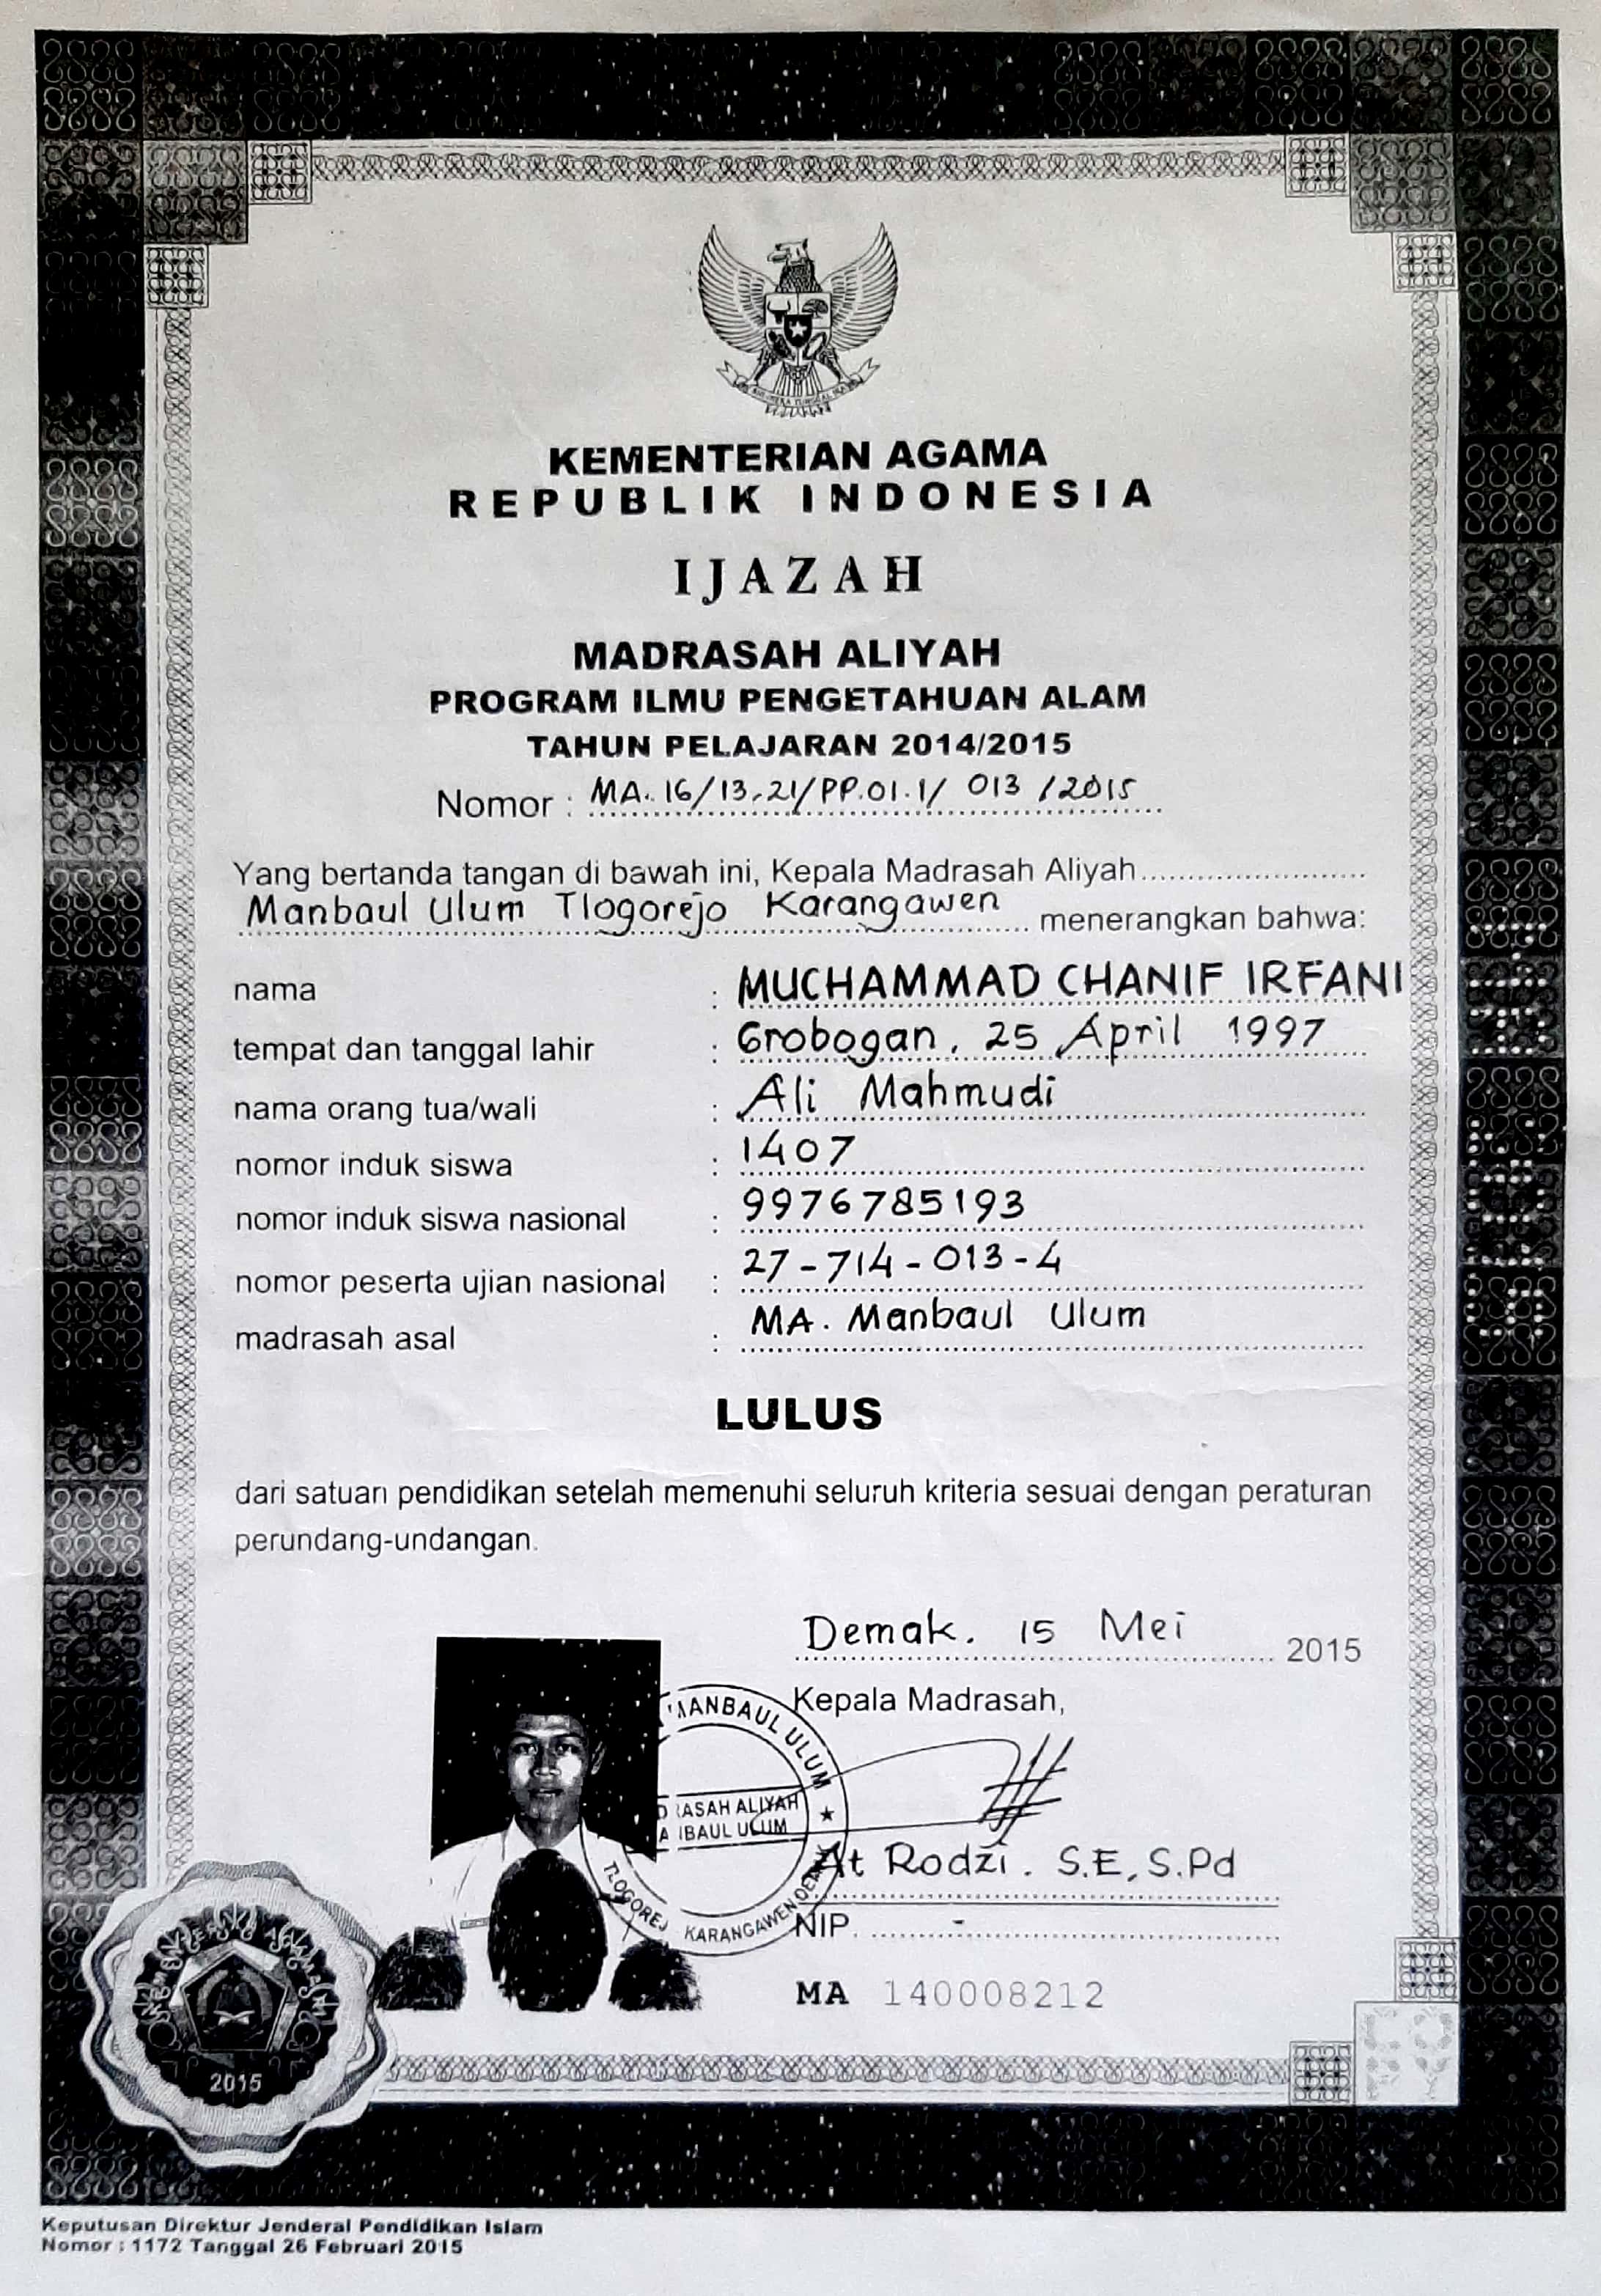 KEMENTERIAN AGAMA
REPUBLIK INDONESIA
IJAZAH
MADRASAH ALIYAH
PROGRAM ILMU PENGETAHUAN ALAM
TAHUN PELAJARAN 2014/2015
Nomor : MA. 16/13.21/PP.01.1/ 013 /2015
Yang bertanda tangan di bawah ini, Kepala Madrasah Aliyah
Manbaul Ulum Tlogorejo Karangawen menerangkan bahwa:
nama : MUCHAMMAD CHANIF IRFANI
tempat dan tanggal lahir : Grobogan, 25 April 1997
nama orang tua/wali : Ali Mahmudi
nomor induk siswa : 1407
nomor induk siswa nasional : 9976785193
nomor peserta ujian nasional : 27-714-013-4
madrasah asal : MA. Manbaul Ulum
LULUS
dari satuan pendidikan setelah memenuhi seluruh kriteria sesuai dengan peraturan
perundang-undangan.
Demak. 15 Mei 2015
Kepala Madrasah,
MANBAUL ULUM
ALIYAH
ULUM
KARANGAWEN
At Rodzi. S.E, S.Pd
NIP. -
MA 140008212
2015
Keputusan Direktur Jenderal Pendidikan Islam
Nomor : 1172 Tanggal 26 Februari 2015